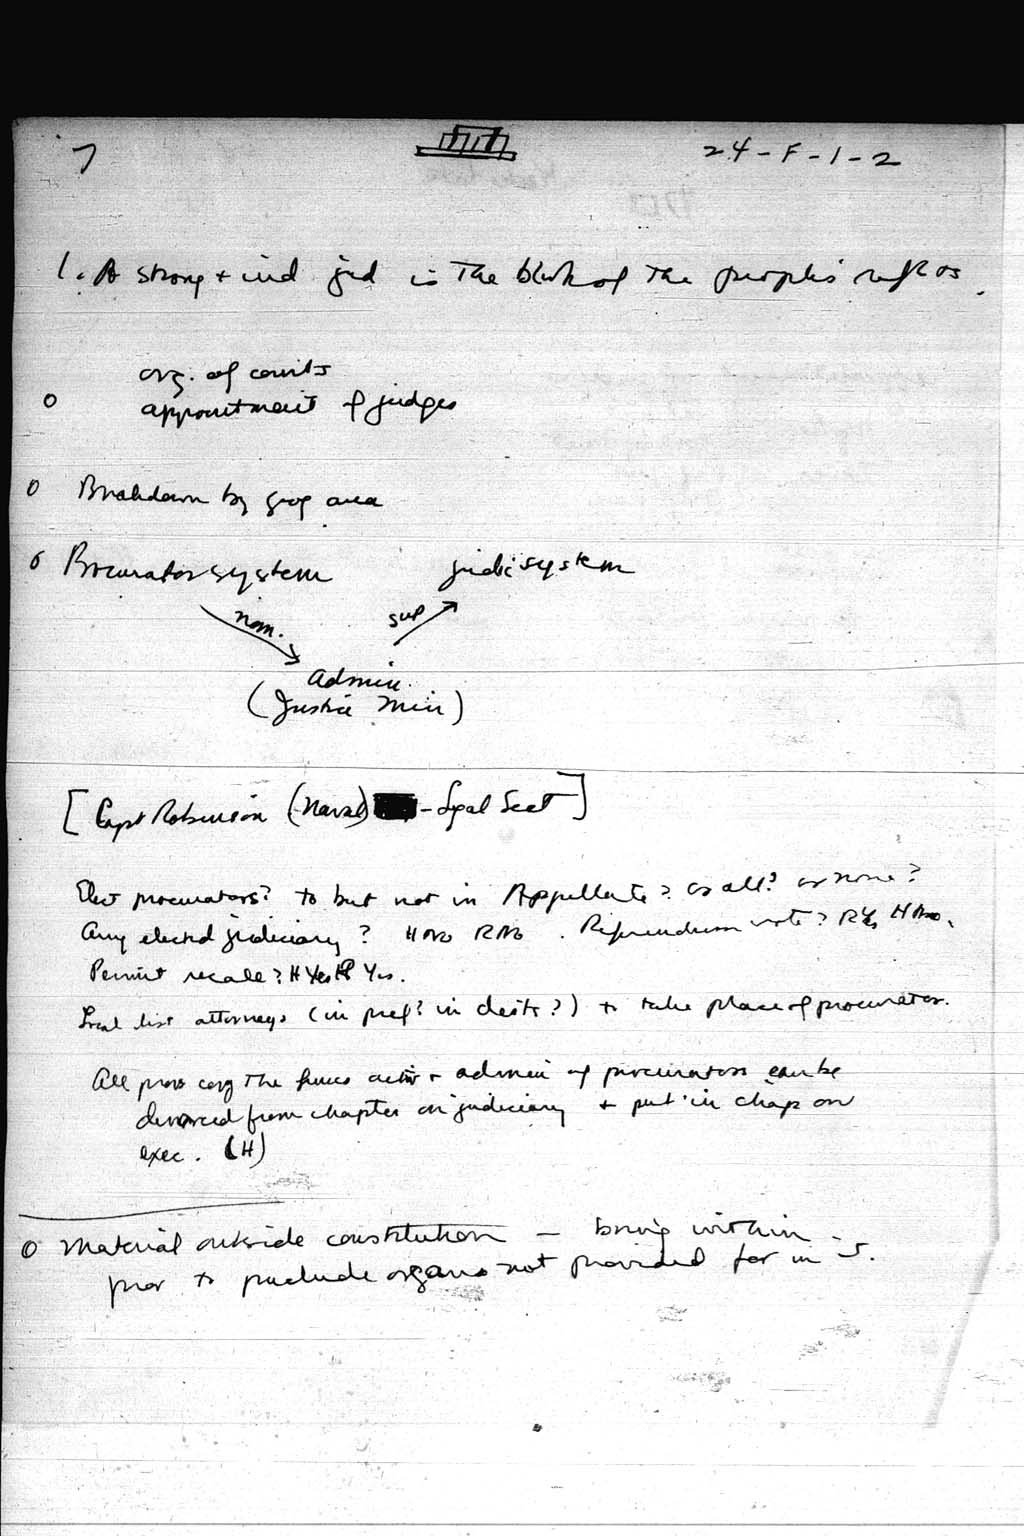 7
24-F-1-2
1. A strong + ind jud is the blwk of the people's
org. of courts
o appointment of judges
o Breakdown by geog area
o Procurator system judic system
nom. sup
Admin.
(Justice Min)
[Capt Robinson (Naval) - Legal Sect]
Elect procurators? to but not in Appellate? or all? or none?
Any elected judiciary? H No R No. Referendum vote? R Yes H No.
Permit recall? H Yes R Yes.
Local dist attorneys (in pref? in cities?) to take place of procurator.
All provs the + admin of procurators can be
divorced from chapter on judiciary + put in chap on
exec. (H)
o Material outside constitution — bring within -
prov to preclude organs not provided for in